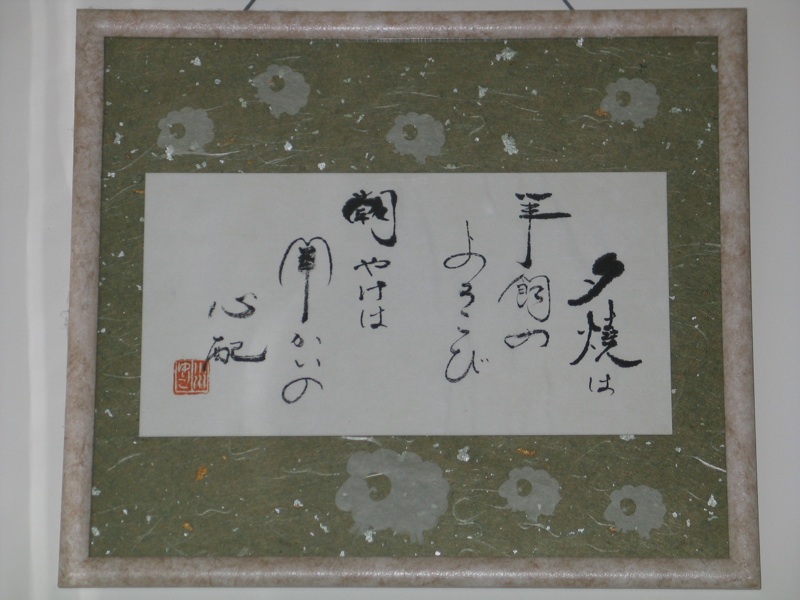 夕燒は
羊飼の
よろこび
朝やけは
羊かいの
心配